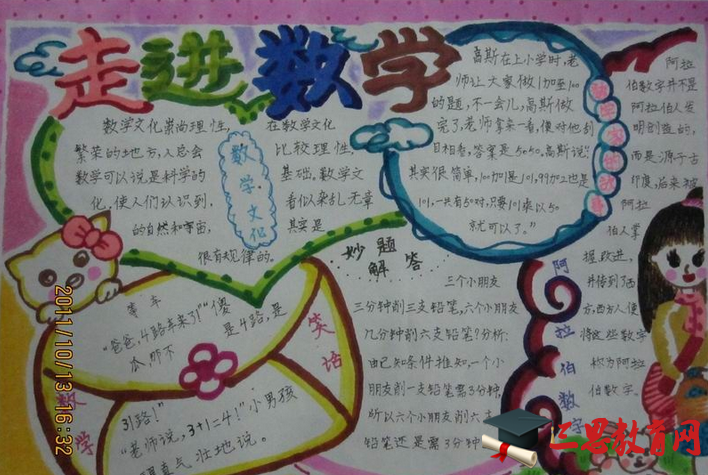 走进数学
数学文化崇尚理性,
繁荣的地方,人总会
数学可以说是科学的
化,使人们认识到,
的自然和宇宙,
很有规律的.
数学文化
在数学文化
比较理性,
基础,数学文
看似杂乱无章
其实是
高斯在上小学时,老
师让大家做1加至100
的题,不一会儿,高斯做
完了,老师拿来一看,便对他刮
目相看,答案是5050,高斯说:“
其实很简单,100加1是101,99加2也是
101,一共有50对,只要101乘以50
就可以了。”
阿拉
伯数字并不是
阿拉伯人发
明创造的,
而是源于古
印度,后来被
阿拉
伯人掌
握、改进,
并传到了西
方,西方人便
将这些数字
称为阿拉
伯数字.
阿拉伯数字
妙题
解答
三个小朋友
三分钟削三支铅笔,六个小朋友
几分钟削六支铅笔?分析:
由已知条件推知,一个小
朋友削一支铅笔需3分钟,
所以六个小朋友削六支
铅笔还是需3分钟
等车
“爸爸,4路车来了!”“傻
瓜,那不是4路,是
31路!”
“老师说,3+1=4!”小男孩
壮地说。
数学
笑话
2011/10/13 16:32
三思教育网